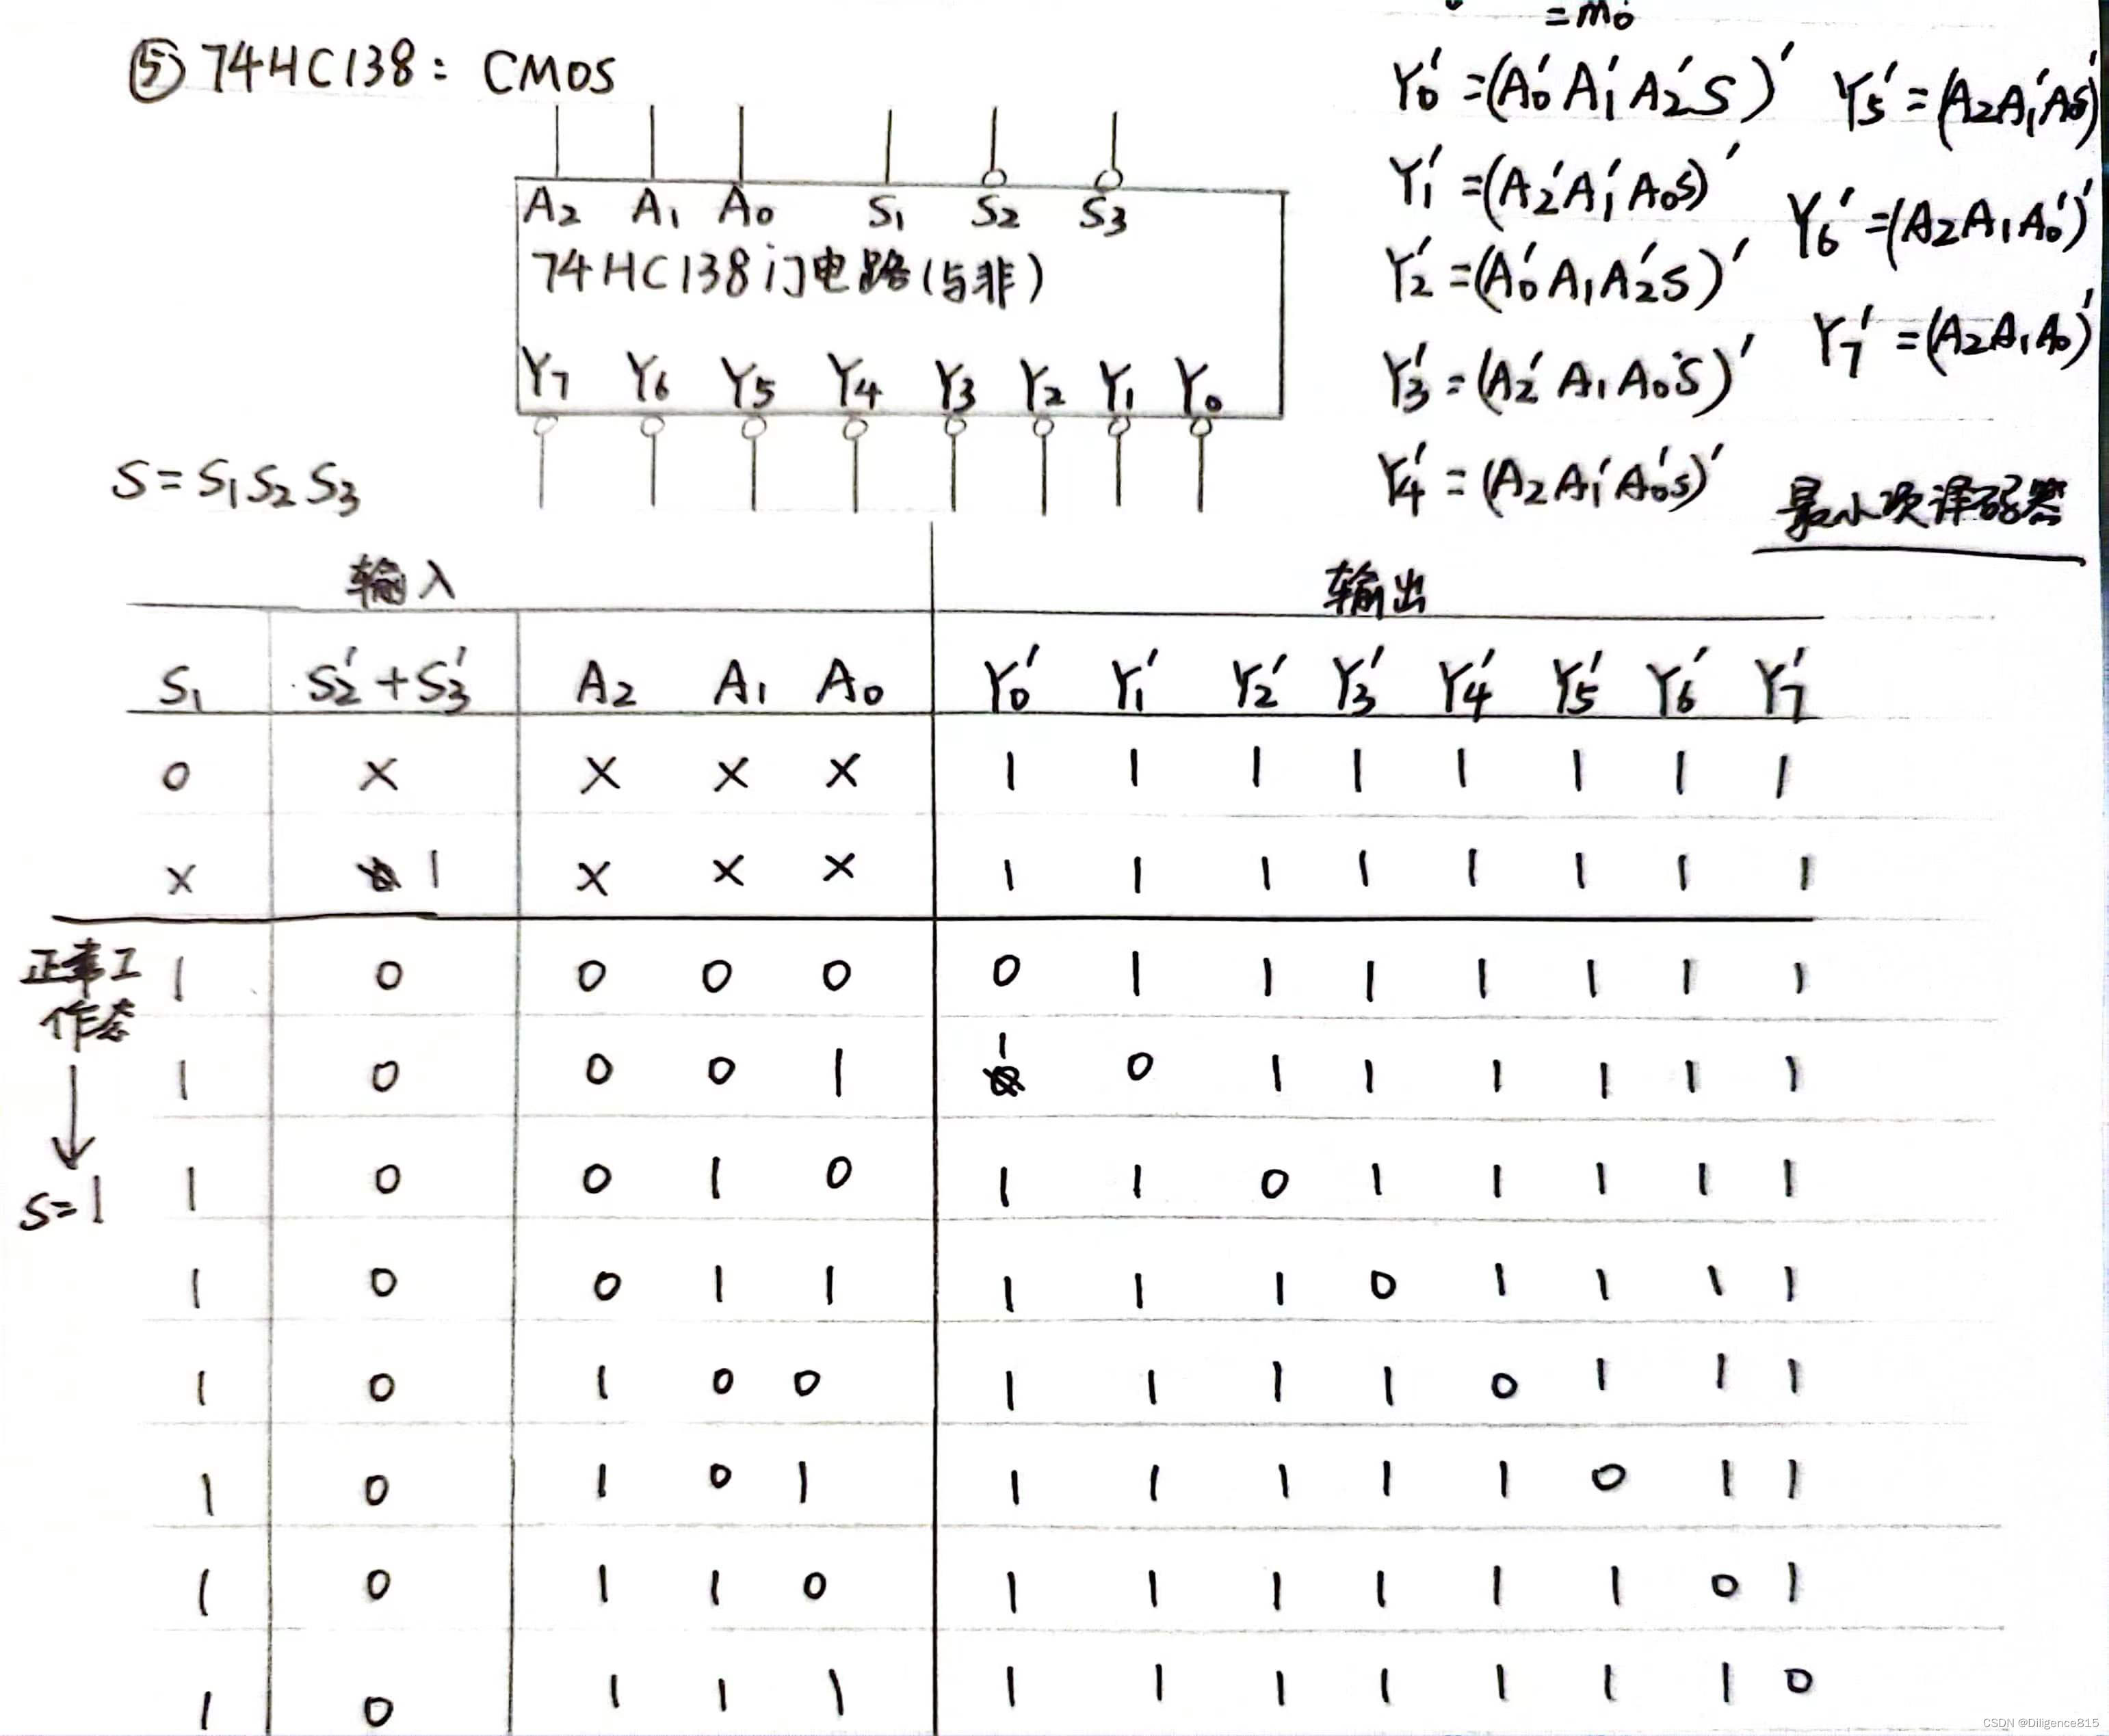 =m₀'
⑤ 74HC138: CMOS
A₂ A₁ A₀ S₁ S₂ S₃
74HC138门电路(与非)
Y₇ Y₆ Y₅ Y₄ Y₃ Y₂ Y₁ Y₀
S=S₁S₂S₃
Y₀'=(A₀'A₁'A₂'S)'
Y₁'=(A₂'A₁'A₀S)'
Y₂'=(A₀'A₁A₂'S)'
Y₃'=(A₂'A₁A₀S)'
Y₄'=(A₂A₁'A₀'S)'
Y₅'=(A₂A₁'A₀S)'
Y₆'=(A₂A₁A₀')'
Y₇'=(A₂A₁A₀)'
最小项译码器
输入 输出
S₁ S₂'+S₃' A₂ A₁ A₀ Y₀' Y₁' Y₂' Y₃' Y₄' Y₅' Y₆' Y₇'
0 × × × × 1 1 1 1 1 1 1 1
× 1 × × × 1 1 1 1 1 1 1 1
正常工
作态
S=1
1 0 0 0 0 0 1 1 1 1 1 1 1
1 0 0 0 1 1 0 1 1 1 1 1 1
1 0 0 1 0 1 1 0 1 1 1 1 1
1 0 0 1 1 1 1 1 0 1 1 1 1
1 0 1 0 0 1 1 1 1 0 1 1 1
1 0 1 0 1 1 1 1 1 1 0 1 1
1 0 1 1 0 1 1 1 1 1 1 0 1
1 0 1 1 1 1 1 1 1 1 1 1 0
CSDN @Diligence815